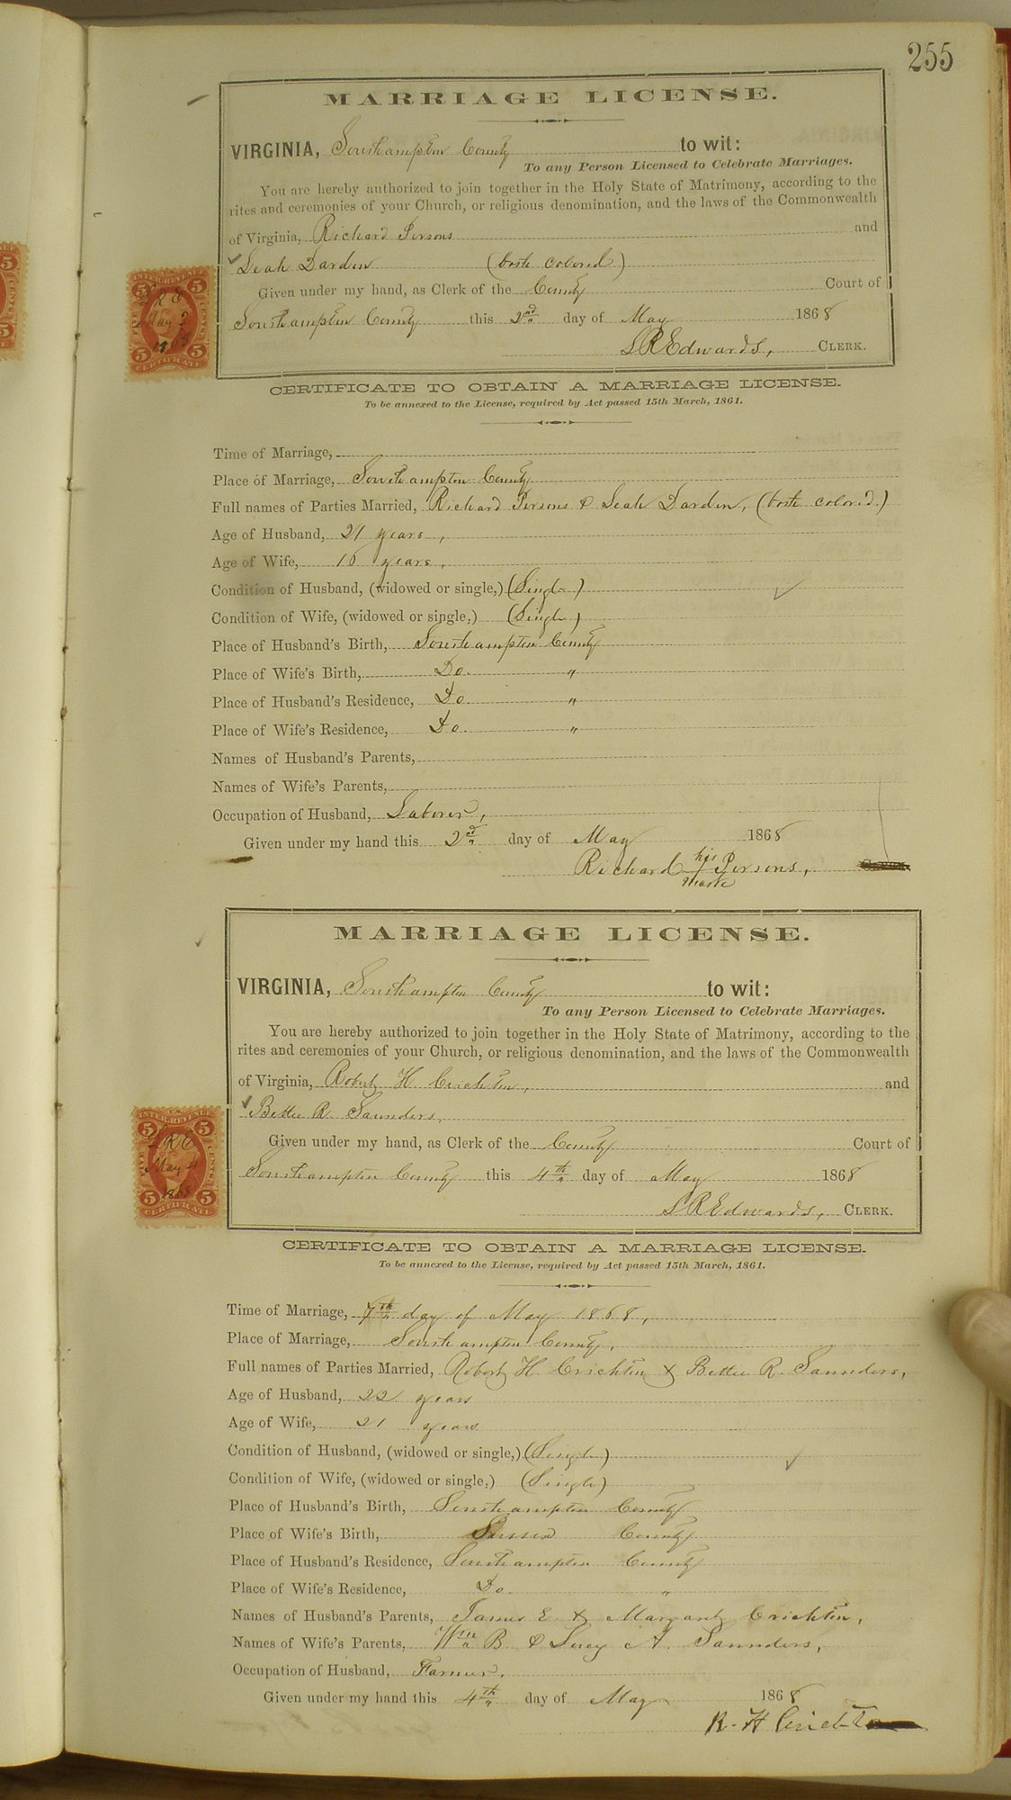 255
MARRIAGE LICENSE.
VIRGINIA, Southampton County to wit:
To any Person Licensed to Celebrate Marriages.
You are hereby authorized to join together in the Holy State of Matrimony, according to the
rites and ceremonies of your Church, or religious denomination, and the laws of the Commonwealth
of Virginia, Richard Persons and
Leah Darden (both colored)
Given under my hand, as Clerk of the County Court of
Southampton County this 2nd day of May 1868
LREdwards, CLERK.
CERTIFICATE TO OBTAIN A MARRIAGE LICENSE.
To be annexed to the License, required by Act passed 15th March, 1861.
Time of Marriage,
Place of Marriage, Southampton County
Full names of Parties Married, Richard Persons & Leah Darden, (both colored.)
Age of Husband, 21 years,
Age of Wife, years,
Condition of Husband, (widowed or single,) (Single)
Condition of Wife, (widowed or single,) (Single)
Place of Husband's Birth, Southampton County
Place of Wife's Birth, Do. "
Place of Husband's Residence, Do "
Place of Wife's Residence, Do. "
Names of Husband's Parents,
Names of Wife's Parents,
Occupation of Husband, Laborer,
Given under my hand this 2nd day of May 1868
Richard his Persons,
mark
MARRIAGE LICENSE.
VIRGINIA, Southampton County to wit:
To any Person Licensed to Celebrate Marriages.
You are hereby authorized to join together in the Holy State of Matrimony, according to the
rites and ceremonies of your Church, or religious denomination, and the laws of the Commonwealth
of Virginia, Robert H. Crichton, and
Bettie R. Saunders,
Given under my hand, as Clerk of the County Court of
Southampton County this 4th day of May 1868
LREdwards, CLERK.
CERTIFICATE TO OBTAIN A MARRIAGE LICENSE.
To be annexed to the License, required by Act passed 15th March, 1861.
Time of Marriage, 7th day of May 1868,
Place of Marriage, Southampton County,
Full names of Parties Married, Robert H. Crichton & Bettie R. Saunders,
Age of Husband, 22 years
Age of Wife, 21 years
Condition of Husband, (widowed or single,) (Single)
Condition of Wife, (widowed or single,) (Single)
Place of Husband's Birth, Southampton County
Place of Wife's Birth, Sussex County
Place of Husband's Residence, Southampton County
Place of Wife's Residence, Do. "
Names of Husband's Parents, James E. & Margaret Crichton,
Names of Wife's Parents, Wm B. & Lucy A. Saunders,
Occupation of Husband, Farmer.
Given under my hand this 4th day of May 1868
R. H Crichton